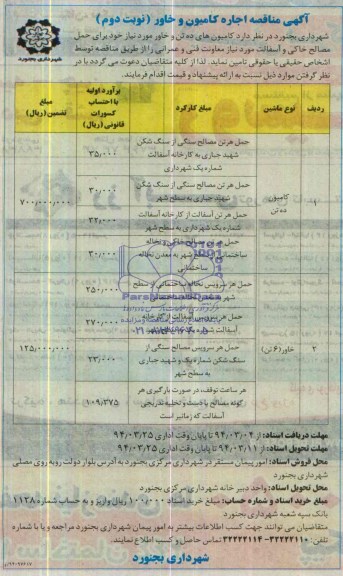 آگهی مناقصه اجاره کامیون و خاور (نوبت دوم)
شهرداری بجنورد در نظر دارد کامیون های ده تن و خاور مورد نیاز خود برای حمل
مصالح خاکی و آسفالت مورد نیاز معاونت فنی و عمرانی را از طریق مناقصه توسط
اشخاص حقیقی یا حقوقی تامین نماید. لذا از کلیه متقاضیان دعوت می گردد با در
نظر گرفتن موارد ذیل نسبت به ارائه پیشنهاد و قیمت اقدام فرمایند.
شهرداری بجنورد
ردیف
نوع ماشین
مبلغ کارکرد
برآورد اولیه با احتساب کسورات قانونی (ریال)
مبلغ تضمین (ریال)
۱
کامیون ده تن
حمل هر تن مصالح سنگی از سنگ شکن
شهید جباری به کارخانه آسفالت
شماره یک شهرداری
۳۵٫۰۰۰
حمل هر تن مصالح سنگی از سنگ شکن
شهید جباری به سطح شهر
۳۰٫۰۰۰
حمل هر تن آسفالت از کارخانه آسفالت
شماره یک شهرداری به سطح شهر
۳۲٫۰۰۰
حمل هر تن مصالح خاکی و نخاله
ساختمانی از سطح شهر به معدن نخاله
ساختمانی
۳۰٫۰۰۰
۷۰۰٫۰۰۰٫۰۰۰
۲
خاور (۶ تن)
حمل هر سرویس نخاله ساختمانی از سطح
۲۵۰٫۰۰۰
حمل هر سرویس آسفالت از کارخانه
آسفالت شماره یک
۲۷۰٫۰۰۰
حمل هر سرویس مصالح سنگی از
سنگ شکن شماره یک و شهید جباری
به سطح شهر
۲۳٫۰۰۰
هر ساعت توقف، در صورت بارگیری هر
گونه مصالح یا تخلیه تدریجی
آسفالت که زمانبر است
۱۰۹٫۳۷۵
۱۲۵٫۰۰۰٫۰۰۰
۰۲۱-۸۸۳۴۹۶۷۰-۵
مهلت دریافت اسناد: از ۹۴/۰۳/۰۴ تا پایان وقت اداری ۹۴/۰۳/۲۵
مهلت تحویل اسناد: از ۹۴/۰۳/۱۱ تا پایان وقت اداری ۹۴/۰۳/۲۵
محل فروش اسناد: امور پیمان مستقر در شهرداری مرکزی بجنورد به آدرس بلوار دولت روبه روی مصلی
شهرداری بجنورد
محل تحویل اسناد: واحد دبیر خانه شهرداری مرکزی بجنورد
مبلغ خرید اسناد و شماره حساب: مبلغ خرید اسناد ۱۰۰٫۰۰۰ ریال واریز و به حساب شماره ۱۱۲۸
بانک سپه شعبه شهرداری بجنورد
متقاضیان می توانند جهت کسب اطلاعات بیشتر به امور پیمان شهرداری بجنورد مراجعه و یا با شماره
تلفن: ۳۲۲۲۲۱۱۰-۳۲۲۲۲۱۱۴ تماس حاصل و کسب اطلاع نمایند.
شهرداری بجنورد